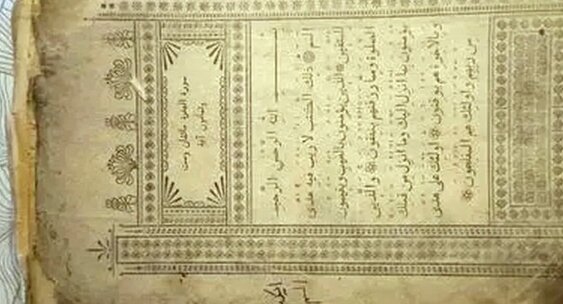 سورة البقرة مائتان وست
وثمانون آية
بسم الله الرحمن الرحيم
الم ذلك الكتاب لا ريب فيه هدى
للمتقين الذين يؤمنون بالغيب ويقيمون
الصلوة ومما رزقناهم ينفقون والذين
يؤمنون بما انزل اليك وما انزل من قبلك
وبالآخرة هم يوقنون اولئك على هدى
من ربهم واولئك هم المفلحون